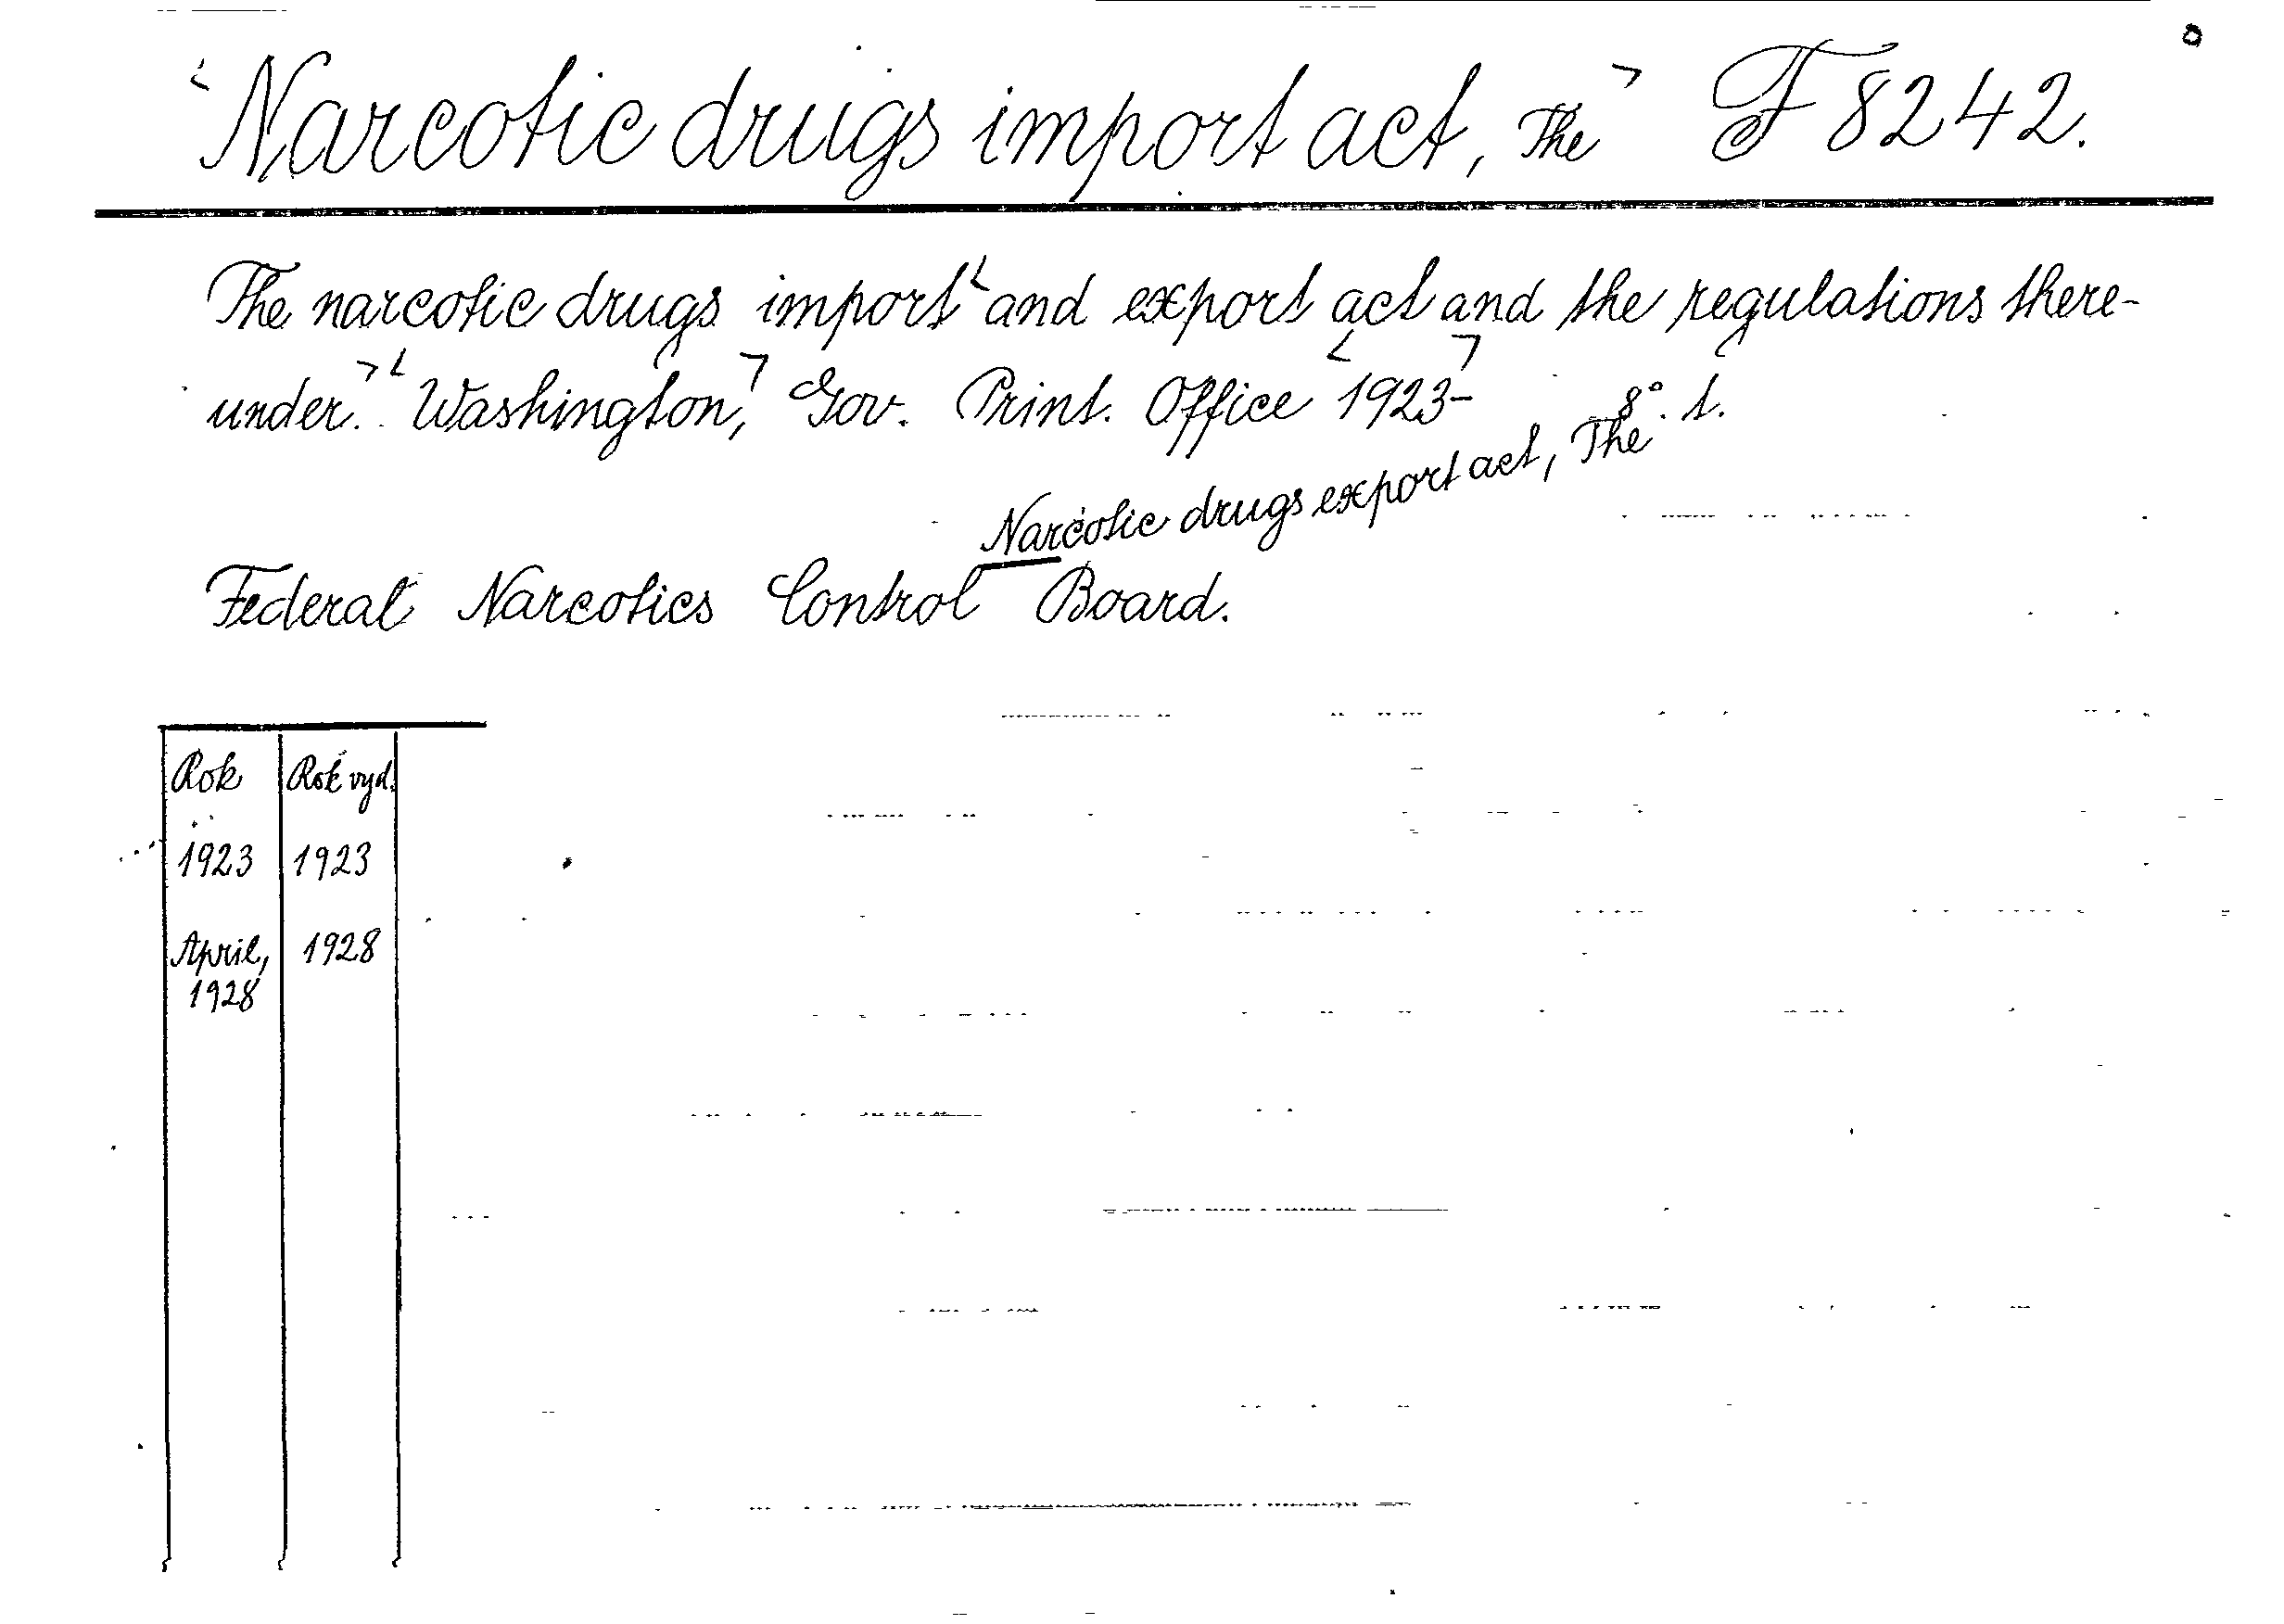 ‹Narcotic drugs import act, The› F 8242.
The narcotic drugs import‹ and export act and the regulations there-
under.› ‹Washington,› Gov. Print. Office ‹1923-› 8°. t.
Narcotic drugs export act, The
Federal Narcotics Control Board.
Rok Rok vyd.
1923 1923
April, 1928
1928